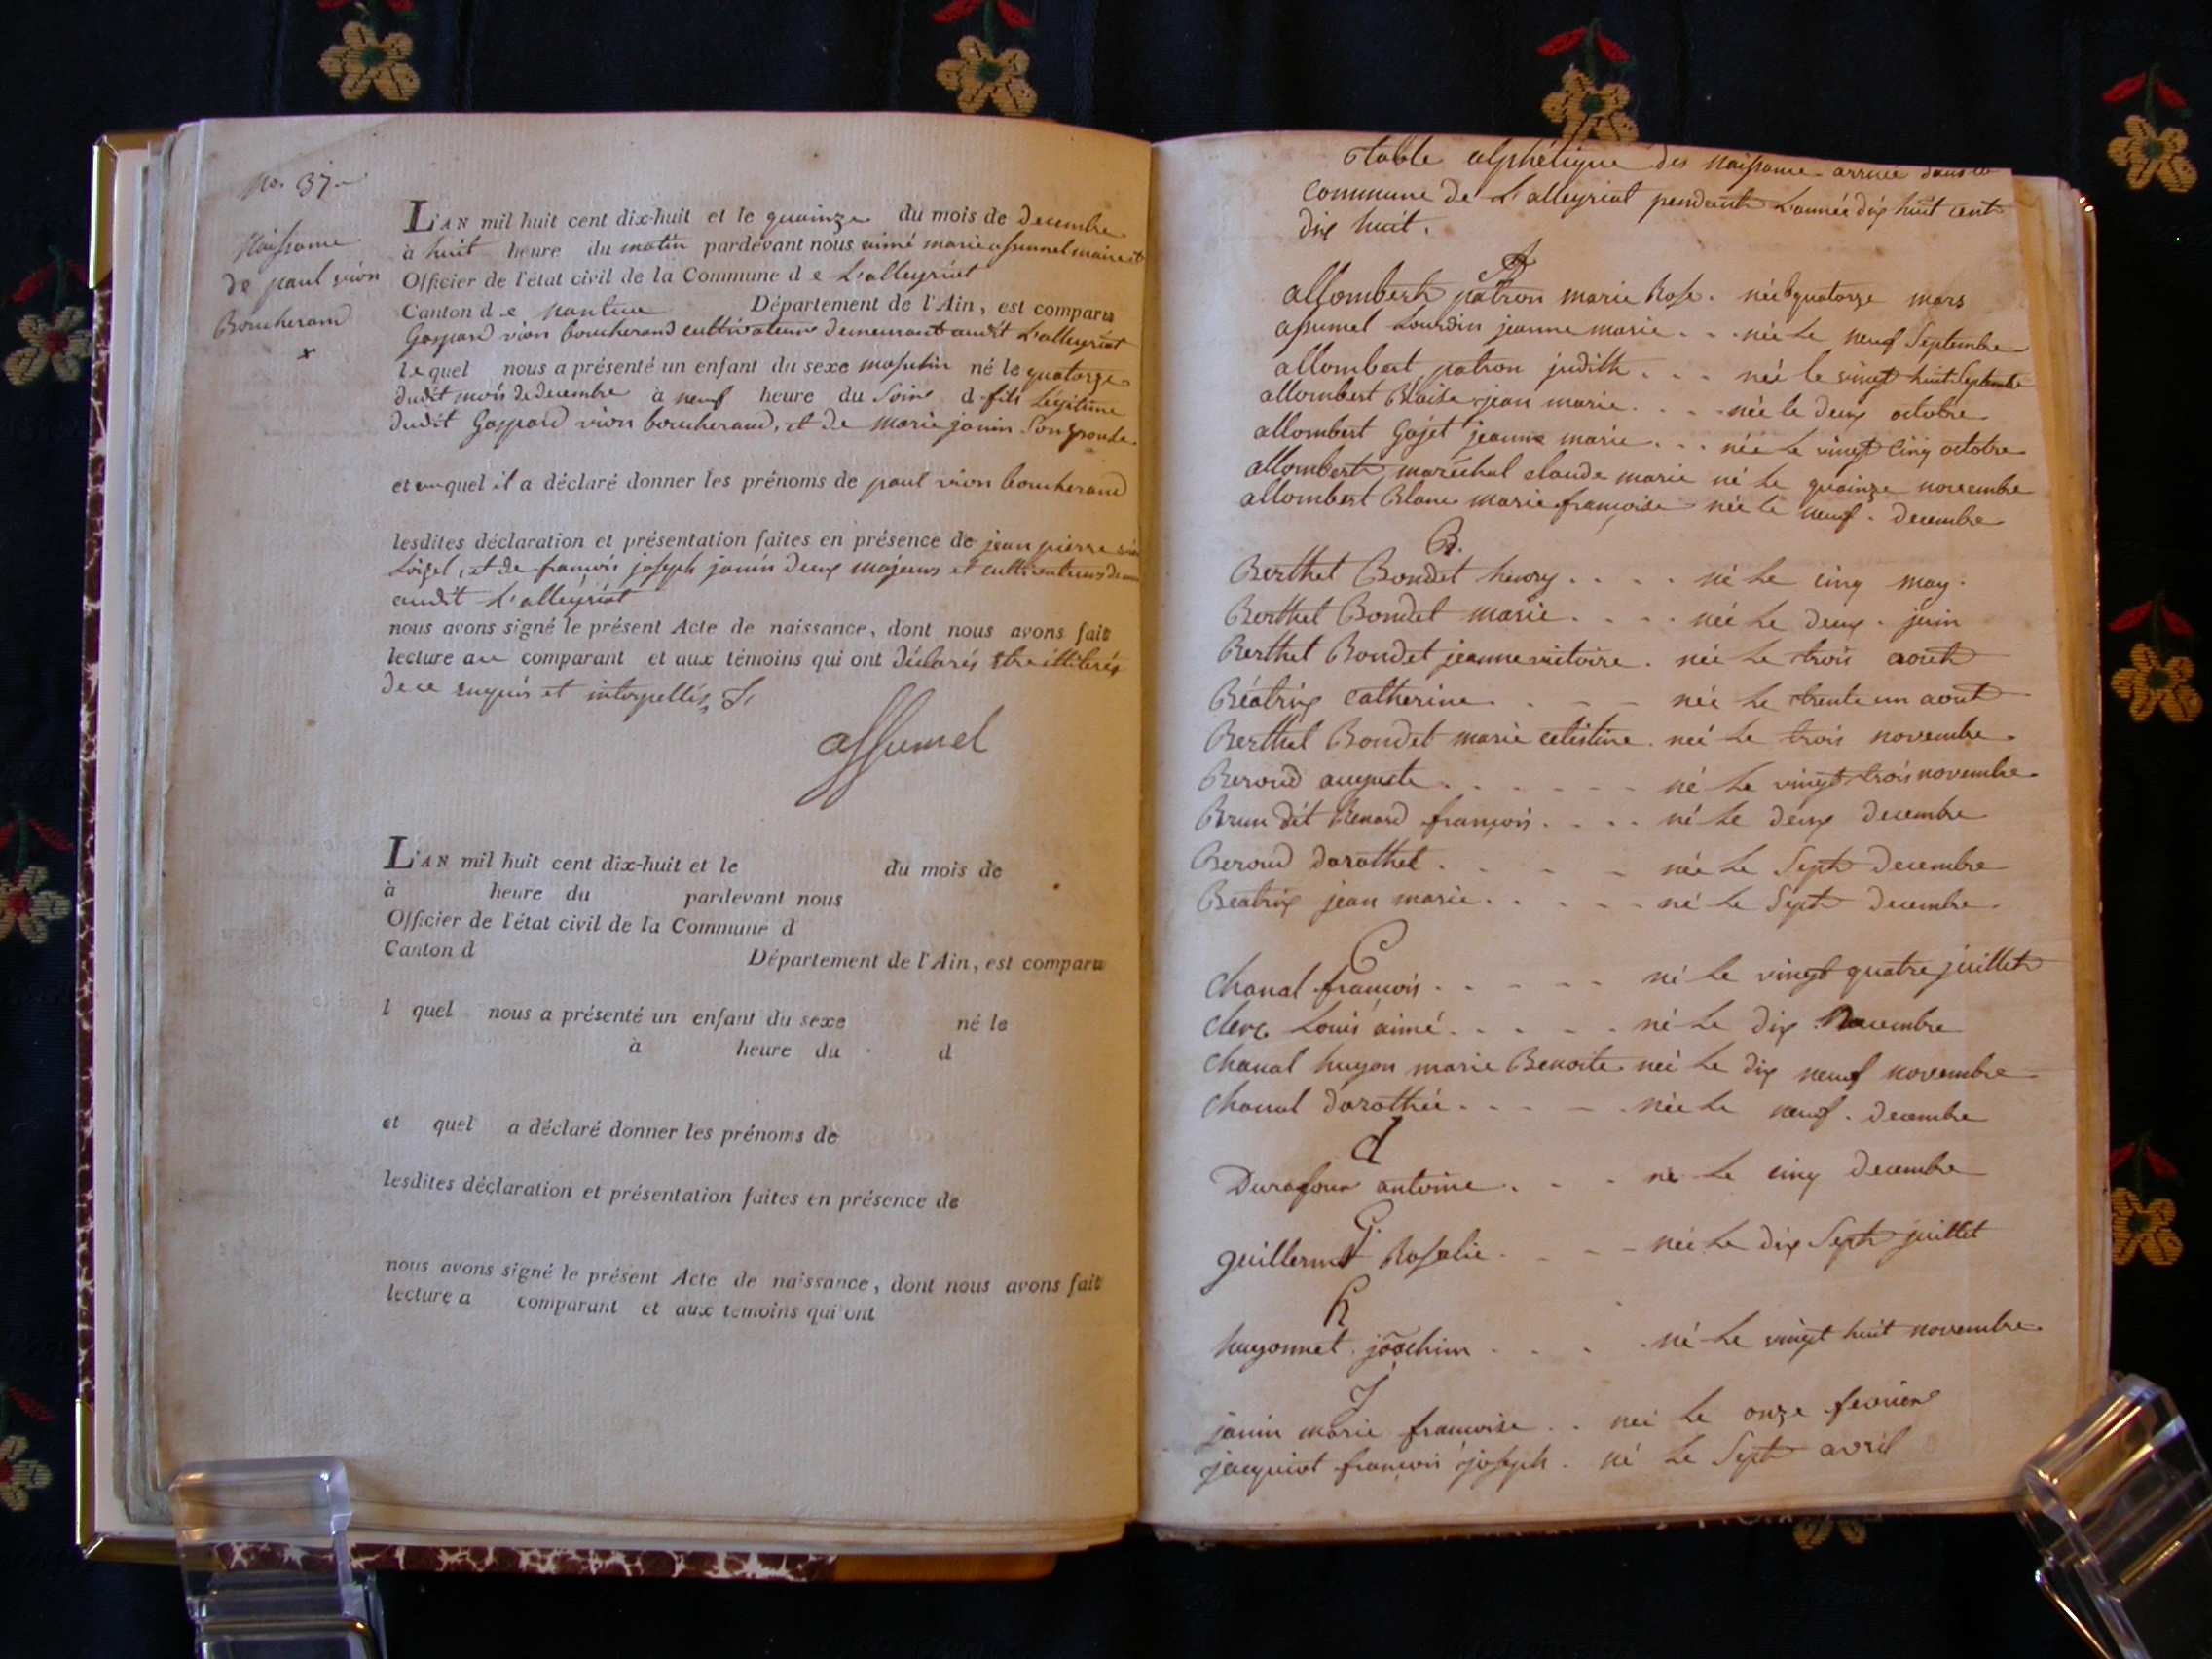 No. 37.
Naissance
de paul vion
Boucherand
x
L'AN mil huit cent dix-huit et le quainze du mois de decembre
à huit heure du matin pardevant nous aimé marie assumel maire et
Officier de l'état civil de la Commune d e L'alleyriat
Canton d e nantua Département de l'Ain, est comparu
Gaspard vion boucherand cultivateur demeurant audit L'alleyriat
le quel nous a présenté un enfant du sexe masculin né le quatorze
dudit mois de decembre à neuf heure du Soire d fils Légitime
dudit Gaspard vion boucherand, et de marie janin Son Epouse
et auquel il a déclaré donner les prénoms de paul vion boucherand
lesdites déclaration et présentation faites en présence de jean pierre
Loizel, et de francois joseph janin deux majeurs et cultivateurs
audit L'alleyriat
nous avons signé le présent Acte de naissance, dont nous avons fait
lecture au comparant et aux témoins qui ont déclarés Etre illiterés
de ce enquis et interpellés
assumel
L'AN mil huit cent dix-huit et le du mois de
à heure du pardevant nous
Officier de l'état civil de la Commune d
Canton d Département de l'Ain, est comparu
l quel nous a présenté un enfant du sexe né le
à heure du d
et quel a déclaré donner les prénoms de
lesdites déclaration et présentation faites en présence de
nous avons signé le présent Acte de naissance, dont nous avons fait
lecture a comparant et aux témoins qui ont
table alphétique des naissance arrivée dans la
commune de L'alleyriat pendant L'année dix huit cent
dix huit.
A
allombert patron marie Rose. née le quatorze mars
assumel Lourdin jeanne marie . . . née Le neuf Septembre
allombert patron judith . . . née le vingt huit Septembre
allombert Blaise jean marie . . . . née le deux octobre
allombert Gojet jeanne marie . . . née Le vingt cinq octobre
allombert maréchal claude marie né Le quainze novembre
allombert Blanc marie françoise née le neuf. decembre
B.
Berthet Bondet henry . . . . né Le cinq may.
Berthet Bondet marie . . . . née Le deux. juin
Berthet Bondet jeanne victoire. née Le trois aout
Béatrix catherine . - - née Le trente un aout
Berthet Bondet marie celestine. née Le trois novembre.
Beroud auguste . . . . . . né Le vingt trois novembre
Brun dit Renard françois . . . . né Le deux decembre
Beroud dorothet . . - - née Le Sept decembre
Beatrix jean marie . . . . . né Le Sept decembre.
C
Chanal francois . . . . . né Le vingt quatre juillet
Clerc Louis aimé . . . . . né Le dix Novembre
Chanal hugon marie Benoite née Le dix neuf novembre
Chanal dorothée . . . - . née Le neuf. decembre
d
Durafour antoine . . . né Le cinq decembre
G.
guillermet Rosalie . - - - née Le dix Sept juillet
h
hugonnet joachim . . . . né Le vingt huit novembre.
J
janin marie francoise . . née Le onze fevrier
jacquiot francois joseph . né Le Sept avril